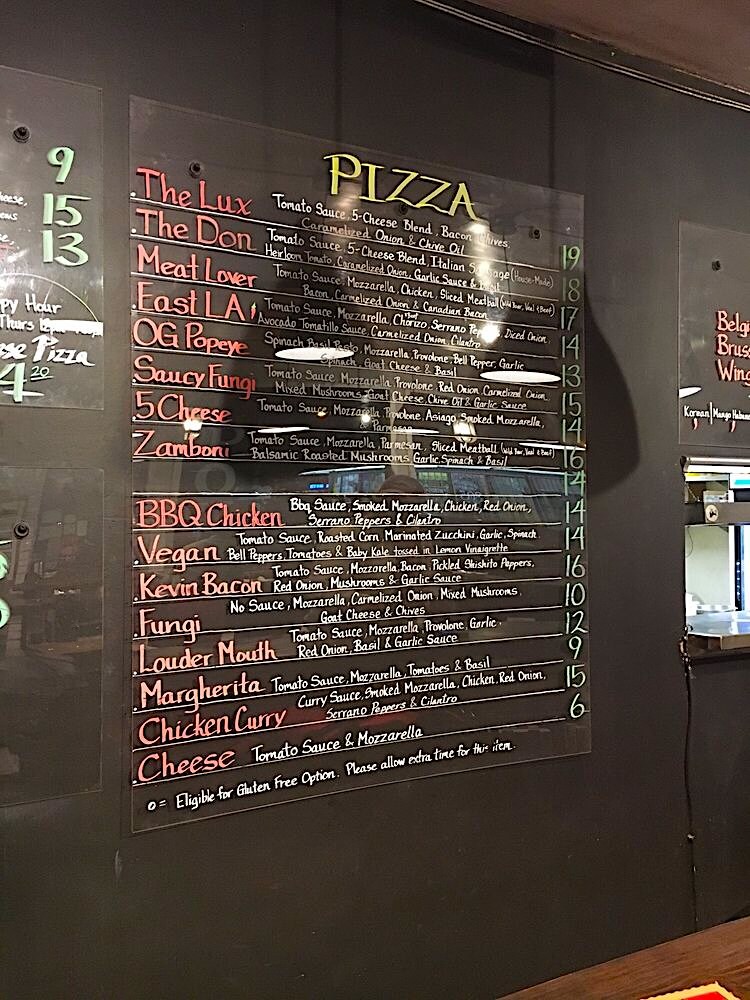 9
15
13
py Hour
Thurs
se Pizza
4.20
PIZZA
The Lux Tomato Sauce, 5-Cheese Blend, Bacon, Chives,
Caramelized Onion & Chive Oil 19
The Don Tomato Sauce, 5-Cheese Blend, Italian Sausage (House-Made)
Heirloom Tomato, Caramelized Onion, Garlic Sauce & Basil 18
Meat Lover Tomato Sauce, Mozzarella, Chicken, Sliced Meatball (Wild Boar, Veal & Beef)
Bacon, Carmelized Onion & Canadian Bacon 17
East LA Tomato Sauce, Mozzarella, Chorizo, Serrano Peppers, Diced Onion,
Avocado Tomatillo Sauce, Carmelized Onion, Cilantro 14
OG Popeye Spinach Basil Pesto, Mozzarella, Provolone, Bell Pepper, Garlic
Spinach, Goat Cheese & Basil 13
Saucy Fungi Tomato Sauce, Mozzarella, Provolone, Red Onion, Carmelized Onion,
Mixed Mushrooms, Goat Cheese, Chive Oil & Garlic Sauce 15
5 Cheese Tomato Sauce, Mozzarella, Provolone, Asiago, Smoked Mozzarella,
& Parmesan 14
Zamboni Tomato Sauce, Mozzarella, Parmesan, Sliced Meatball (Wild Boar, Veal & Beef)
Balsamic Roasted Mushrooms, Garlic, Spinach & Basil 16
14
BBQ Chicken Bbq Sauce, Smoked Mozzarella, Chicken, Red Onion,
Serrano Peppers & Cilantro 14
Vegan Tomato Sauce, Roasted Corn, Marinated Zucchini, Garlic, Spinach
Bell Peppers, Tomatoes & Baby Kale tossed in Lemon Vinaigrette 14
Kevin Bacon Tomato Sauce, Mozzarella, Bacon, Pickled Shishito Peppers,
Red Onion, Mushrooms & Garlic Sauce 16
Fungi No Sauce, Mozzarella, Carmelized Onion, Mixed Mushrooms,
Goat Cheese & Chives 10
Louder Mouth Tomato Sauce, Mozzarella, Provolone, Garlic
Red Onion, Basil & Garlic Sauce 12
Margherita Tomato Sauce, Mozzarella, Tomatoes & Basil 9
Chicken Curry Curry Sauce, Smoked Mozzarella, Chicken, Red Onion,
Serrano Peppers & Cilantro 15
Cheese Tomato Sauce & Mozzarella 6
o = Eligible for Gluten Free Option. Please allow extra time for this item.
Belgi
Bruss
Wing
Korean | Mango Habane